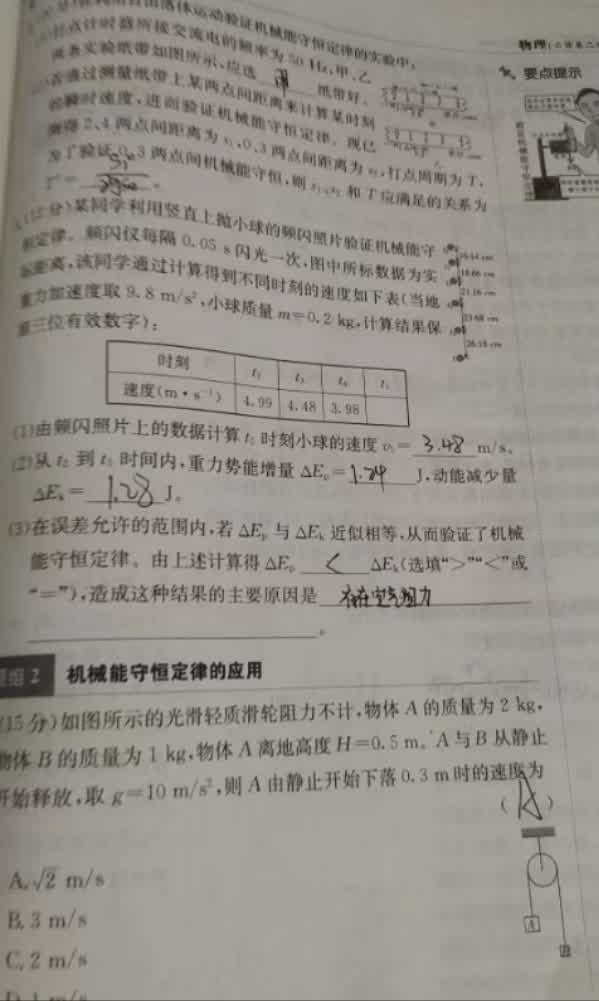 落体运动验证机械能守恒定律的实验中,
打点计时器所接交流电的频率为50 Hz,甲、乙
两条实验纸带如图所示,应选 甲 纸带好。
若通过测量纸带上某两点间距离来计算某时刻
的瞬时速度,进而验证机械能守恒定律。现已
测得2、4两点间距离为s₁,0、3两点间距离为s₂,打点周期为T,
为了验证0、3两点间机械能守恒,则s₁、s₂和T应满足的关系为
物理
要点提示
(12分)某同学利用竖直上抛小球的频闪照片验证机械能守
恒定律。频闪仪每隔0.05 s闪光一次,图中所标数据为实
际距离,该同学通过计算得到不同时刻的速度如下表(当地
重力加速度取9.8 m/s²,小球质量m=0.2 kg,计算结果保
留三位有效数字):
18.66 cm
21.16 cm
23.68 cm
26.18 cm
时刻 t₂ t₃ t₄ t₅
速度(m·s⁻¹) 4.99 4.48 3.98
(1)由频闪照片上的数据计算t₅时刻小球的速度v₅= 3.48 m/s。
(2)从t₂到t₅时间内,重力势能增量ΔEₚ= 1.24 J,动能减少量
ΔEₖ= 1.28 J。
(3)在误差允许的范围内,若ΔEₚ与ΔEₖ近似相等,从而验证了机械
能守恒定律。由上述计算得ΔEₚ < ΔEₖ(选填“>”“<”或
“=”),造成这种结果的主要原因是 存在空气阻力
。
题组2 机械能守恒定律的应用
(15分)如图所示的光滑轻质滑轮阻力不计,物体A的质量为2 kg,
物体B的质量为1 kg,物体A离地高度H=0.5 m。A与B从静止
开始释放,取g=10 m/s²,则A由静止开始下落0.3 m时的速度为
( A )
A.√2 m/s
B. 3 m/s
C. 2 m/s
D. 1 m/s
A
B